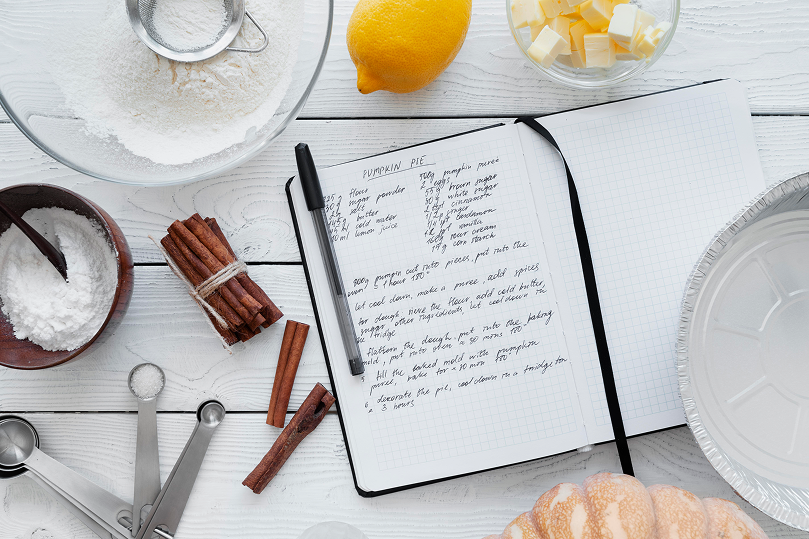 PUMPKIN PIE
flour
sugar powder
salt
butter
cold water
ml lemon juice
500g pumpkin pureé
2 eggs
55g brown sugar
30g white sugar
cinnamon
ginger
cardamom
vanilla
sour cream
19g corn starch
pumpkin cut into pieces, put into the
oven 1 hour 180°
let cool down, make a puree, add spices
for dough sieve the flour, add cold butter,
sugar, other ingredients, let cool down in
fridge
flatten the dough, put into the baking
mold, put into oven ≈ 30 mins 180°
fill the baked mold with pumpkin
puree, bake for ≈ 30 min 180
6. decorate the pie, cool down in a fridge for
≈ 3 hours